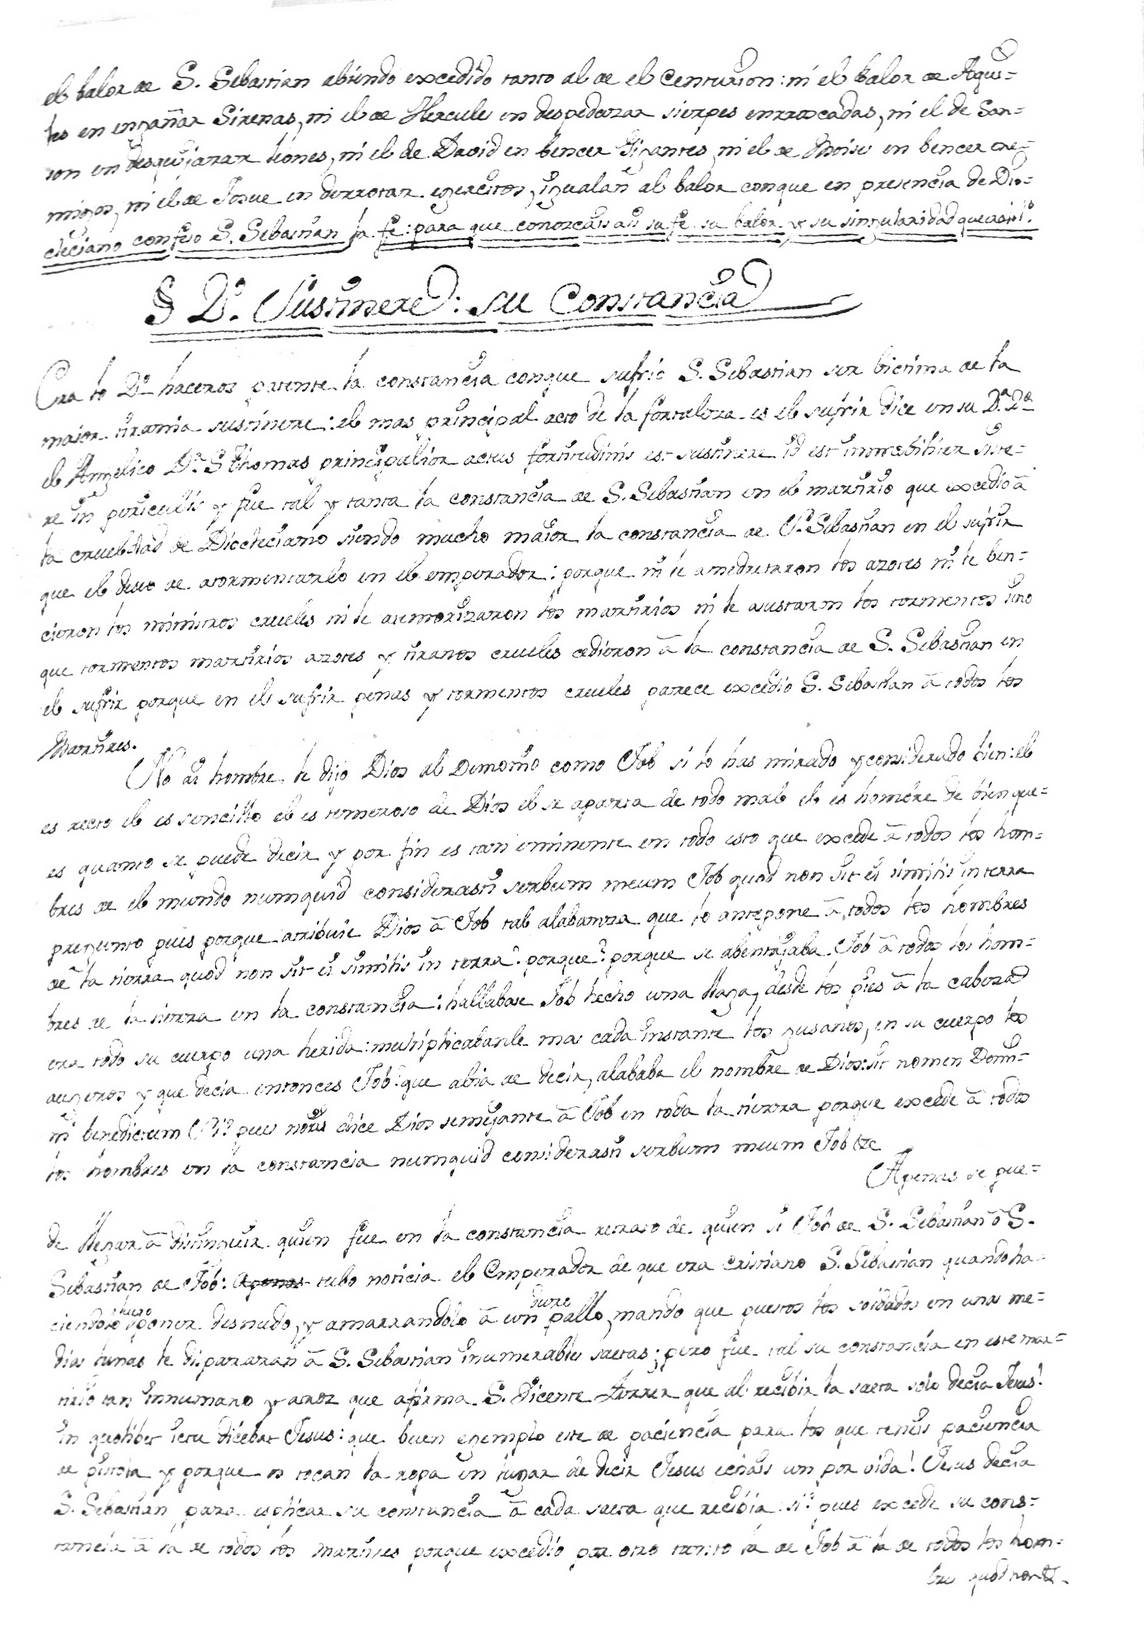 el balor de S. Sebastian abiendo excedido tanto al de el Centurion: ni el balor de Agus=
tes en engañar Sirenas, ni el de Hercules en despedazar sierpes enrroscadas, ni el de San=
son en desquijarar leones, ni el de David en bencer Gigantes, ni el de Moises en bencer ene=
migos, ni el de Josue en derrotar egercitos, igualan al balor conque en presencia de Dio=
cleciano confeso S. Sebastian la fe: para que conozcais asi su fe su balor y su singularidad
§ 2º. Sustinere: su Constancia
Era lo 2º haceros patente la constancia conque sufrio S. Sebastian ser bictima de la
maior tirania sustinere: el mas principal acto de la fortaleza es el sufrir dice en su 2ª 2ª
el Angelico Dr. S Thomas principalior actus fortitudinis est sustinere id est immobiliter siste=
re in periculis y fue tal y tanta la constancia de S. Sebastian en el martirio que excedio â
la crueldad de Diocleciano siendo mucho maior la constancia de S. Sebastian en el sufrir
que el deseo de atormentarlo en el emperador: porque ni le amedrentaron los azotes ni le ben=
cieron los ministros crueles ni le atemorizaron los martirios ni le asustaron los tormentos sino
que tormentos martirios azotes y tiranos crueles cedieron â la constancia de S. Sebastian en
el sufrir porque en el sufrir penas y tormentos crueles parece excedio S. Sebastian â todos los
Martires.
No ai hombre le dijo Dios al Demonio como Job si lo has mirado y considerado bien: el
es recto el es sencillo el es temeroso de Dios el se aparta de todo mal el es hombre de bien que=
es quanto se puede decir y por fin es tan eminente en todo esto que excede â todos los hom=
bres de el mundo numquid considerasti serbum meum Job quod non sit ei similis in terra
pregunto pues porque atribuie Dios â Job tal alabanza que lo antepone â todos los hombres
de la tierra quod non sit ei similis in terra? porque? porque se abentajaba Job â todos los hom=
bres de la tierra en la constancia: hallabase Job hecho una llaga, desde los pies â la cabeza
era todo su cuerpo una herida: multiplicabanle mas cada instante los gusanos, en su cuerpo los
augeros y que decia entonces Job? que abia de decir, alababa el nombre de Dios: sit nomen Domi=
ni benedictum si? pues no ai dice Dios semejante â Job en toda la tierra porque excede â todos
los hombres en la constancia numquid considerasti serbum meum Job &c
Apenas se pue=
de llegar â distinguir quien fue en la constancia retrato de quien si Job de S. Sebastian ô S.
Sebastian de Job: Apenas tubo noticia el Emperador de que era cristiano S. Sebastian quando ha
ciendolo poner desnudo, y amarrandolo â un pallo, mando que puestos los soldados en una me=
dias lunas le dispararan â S. Sebastian inumerables saetas; pero fue tal su constancia en este mar=
tirio tan innumano y atroz que afirma S. Vicente Ferrer que al recibir la saeta solo decia Jesus!
in quolibet ictu dicebat Jesus: que buen egemplo este de paciencia para los que teneis paciencia
de y porque os tocan la ropa en lugar de decir Jesus echais un por vida! Jesus decia
S. Sebastian para esplicar su constancia â cada saeta que recibia si? pues excede su cons=
tancia â la de todos los Martires porque excedio por otro tanto la de Job â la de todos los hom=
bres quod non